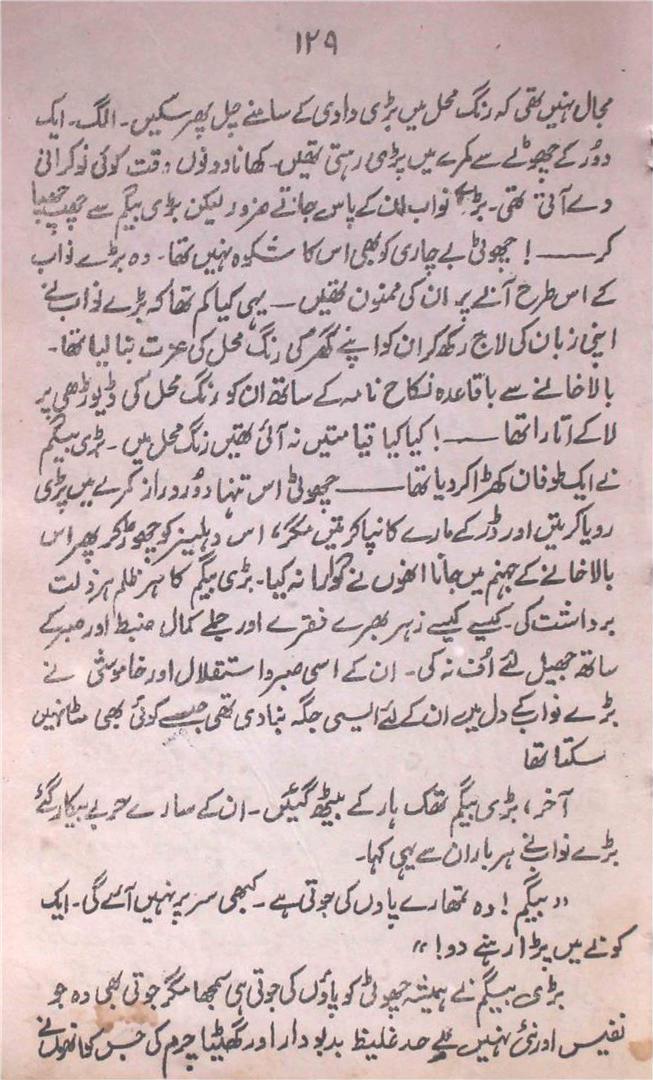 ۱۲۹
مجال نہیں تھی کہ رنگ محل میں بڑی دادی کے سامنے چل پھر سکیں۔ الگ۔ ایک
دُور کے چھوٹے سے کمرے میں پڑی رہتی تھیں۔ کھانا دونوں وقت کوئی نوکرانی
دے آتی تھی۔ بڑے نواب ان کے پاس جاتے ضرور لیکن بڑی بیگم سے چھپ چھپا
کر ——— ! چھوٹی بے چاری کو بھی اس کا شکوہ نہیں تھا۔ وہ بڑے نواب
کے اس طرح آنے پر ان کی ممنون تھیں — یہی کیا کم تھا کہ بڑے نواب نے
اپنی زبان کی لاج رکھ کر ان کو اپنے گھر کی رنگ محل کی عزت بنا لیا تھا۔
بالاخانے سے باقاعدہ نکاح نامہ کے ساتھ ان کو رنگ محل کی ڈیوڑھی پر
لا کے اتارا تھا —— ! کیا کیا قیامتیں نہ آئی تھیں رنگ محل میں۔ بڑی بیگم
نے ایک طوفان کھڑا کر دیا تھا ——— چھوٹی اس تنہا دُور دراز کمرے میں پڑی
رویا کرتیں اور ڈر کے مارے کانپا کرتیں مگر، اس دہلیز کو چھوڑ کر پھر اس
بالاخانے کے جہنم میں جانا انھوں نے گوارا نہ کیا۔ بڑی بیگم کا ہر ظلم ہر ذلت
برداشت کی۔ کیسے کیسے زہر بھرے فقرے اور جملے کمال ضبط اور صبر کے
ساتھ جھیل لئے اُف نہ کی۔ ان کے اسی صبر و استقلال اور خاموشی نے
بڑے نواب کے دل میں ان کے لئے ایسی جگہ بنا دی تھی جسے کوئی بھی مٹا نہیں
سکتا تھا
آخر، بڑی بیگم تھک ہار کے بیٹھ گئیں۔ ان کے سارے حربے بیکار گئے
بڑے نواب نے ہر بار ان سے یہی کہا۔
”بیگم! وہ تمھارے پاوں کی جوتی ہے۔ کبھی سر پر نہیں آئے گی۔ ایک
کونے میں پڑا رہنے دو!“
بڑی بیگم نے ہمیشہ چھوٹی کو پاؤں کی جوتی ہی سمجھا مگر جوتی بھی وہ جو
نفیس اور نئی نہیں بے حد غلیظ بدبودار اور گھٹیا چرم کی جس کو انھوں نے